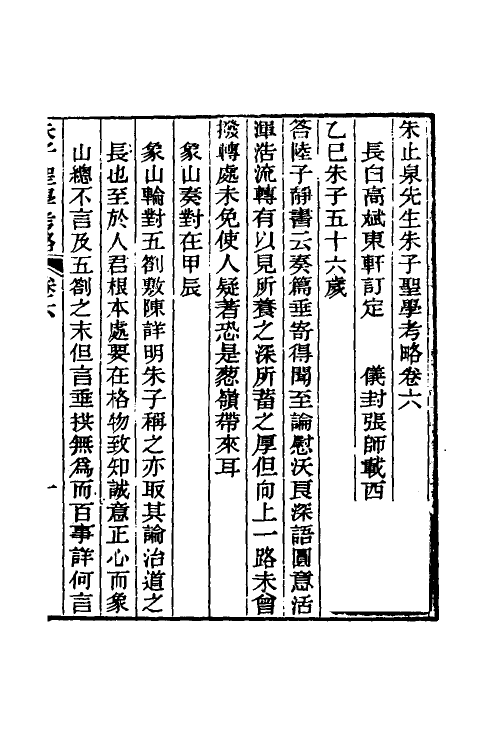 朱止泉先生朱子聖學考略卷六
長白高斌東軒訂定　儀封張師載西
乙巳朱子五十六歲
答陸子靜書云奏篇垂寄得聞至論慰沃良深語圓意活
渾浩流轉有以見所養之深所蓄之厚但向上一路未曾
撥轉處未免使人疑著恐是葱嶺帶來耳
象山奏對在甲辰
象山輪對五劄敷陳詳明朱子稱之亦取其論治道之
長也至於人君根本處要在格物致知誠意正心而象
山總不言及五劄之末但言垂拱無為而百事詳何言
朱子聖學考略　卷六　一